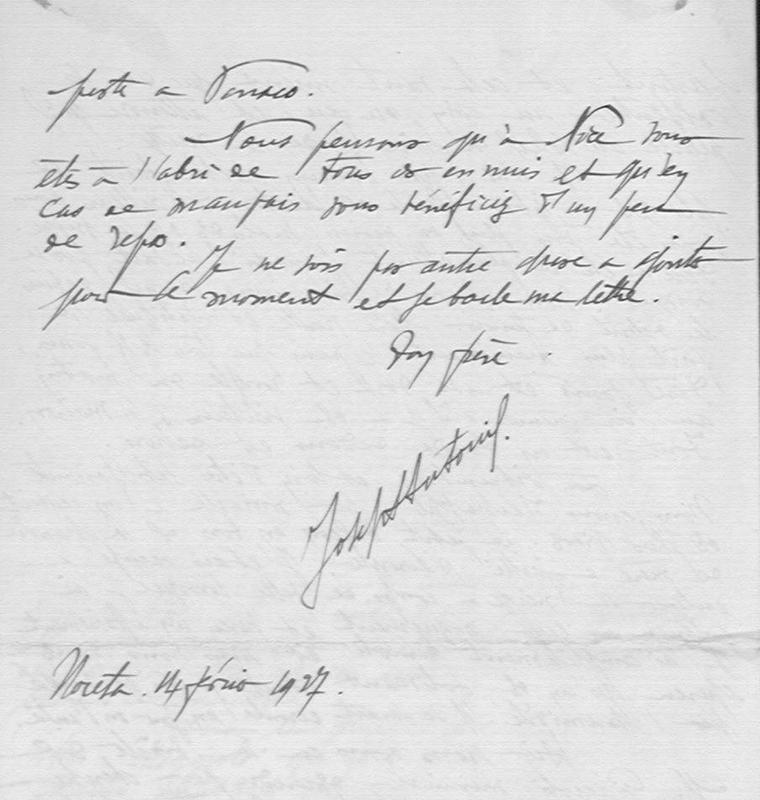 poste a Venaco.
Nous pensons qu'à Nice vous
êtes à l'abri de tous ces ennuis et qu'en
cas de mauvais vous bénéficiez d'un peu
de repos.
Je ne vois pas autre chose a ajouter
pour le moment et je boucle ma lettre.
Ton frère
Joseph Antoine
Noceta. 14 février 1927.